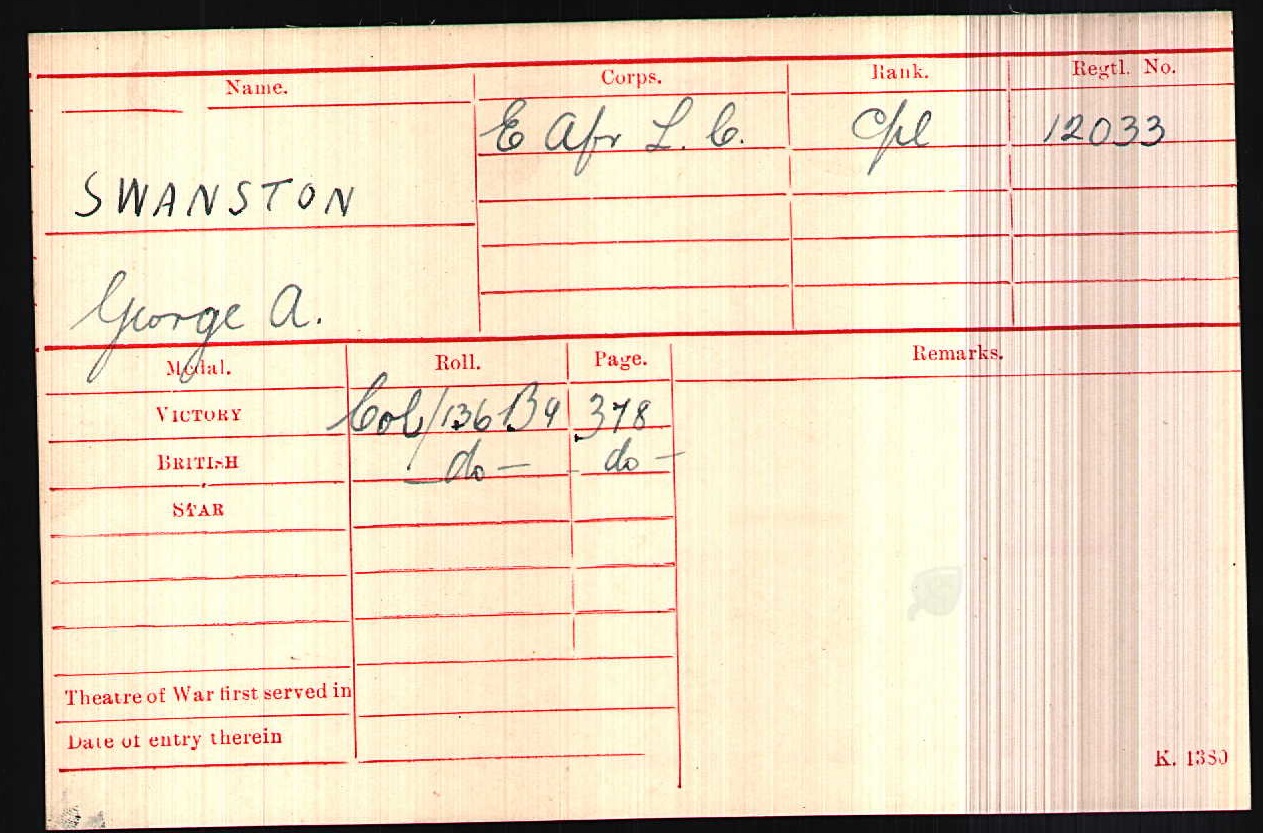 Name. Corps. Rank. Regtl. No.
E Afr L. C. Cpl 12033
SWANSTON
George A.
Medal. Roll. Page. Remarks.
VICTORY Col/136 B4 378
BRITISH do — - do -
STAR
Theatre of War first served in
Date of entry therein
K. 1380